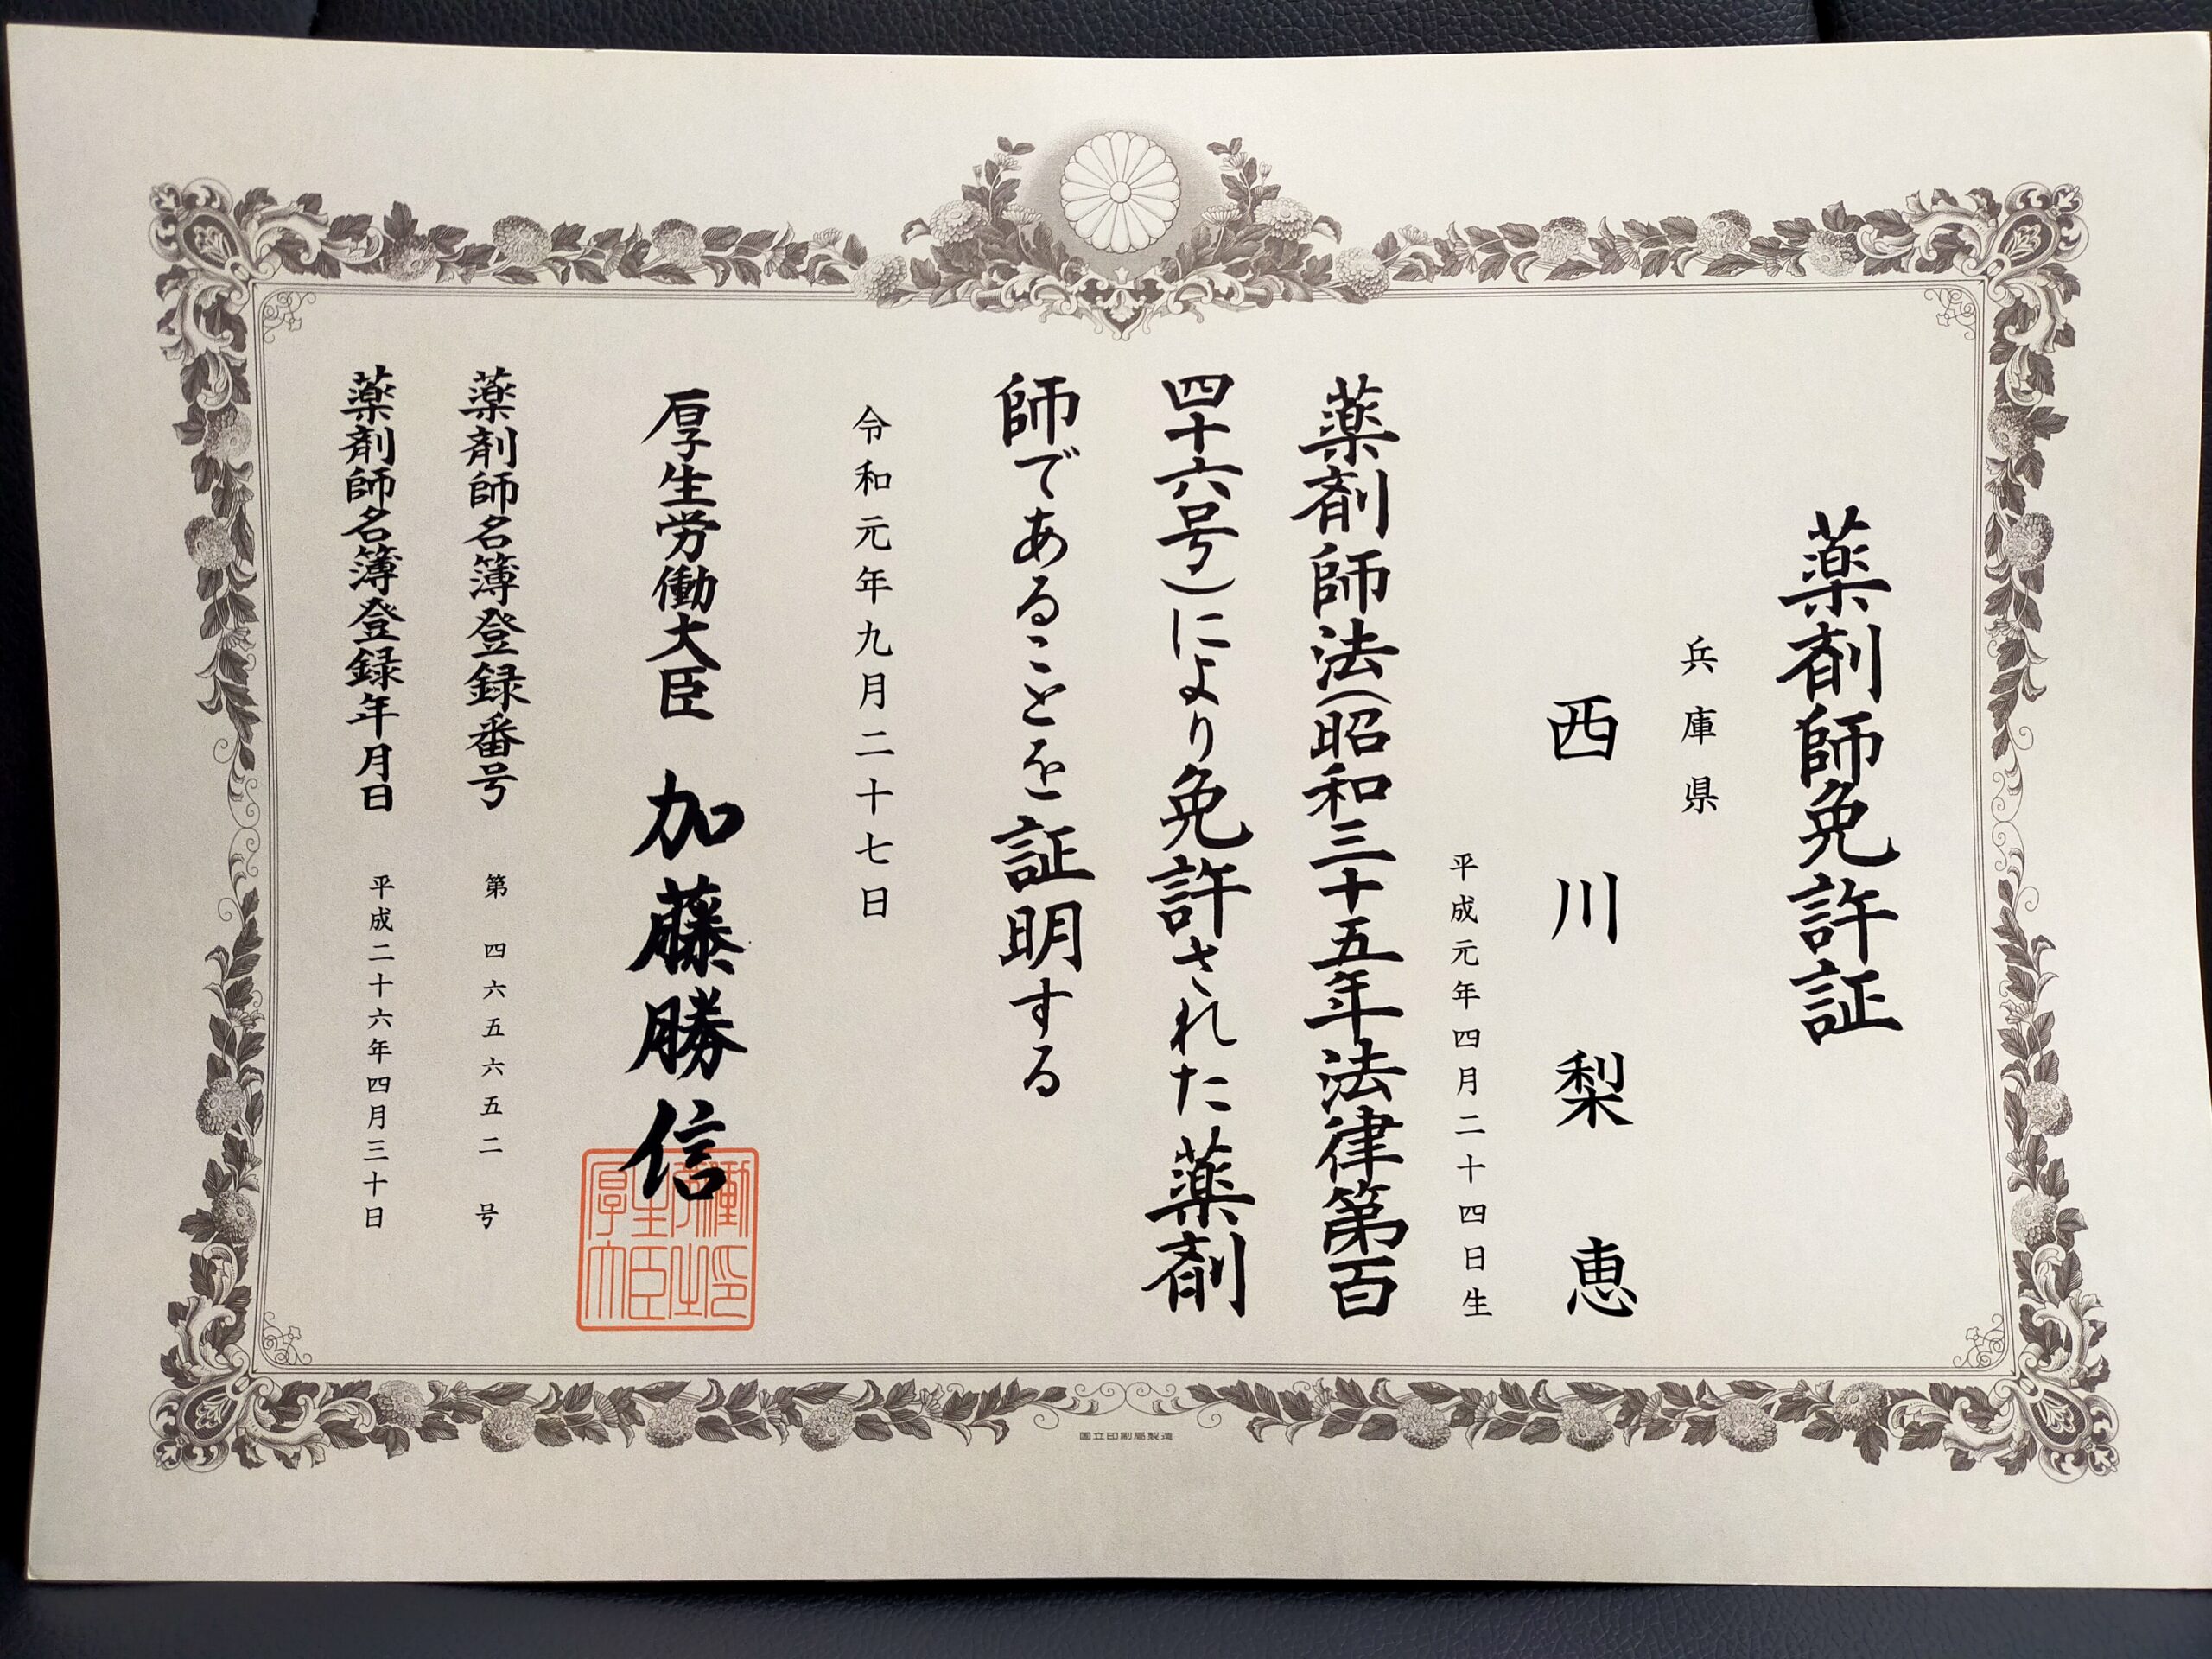 薬剤師免許証
兵庫県
西川梨恵
平成元年四月二十四日生
薬剤師法(昭和三十五年法律第百
四十六号)により免許された薬剤
師であることを証明する
令和元年九月二十七日
厚生労働大臣 加藤勝信
薬剤師名簿登録番号 第 四六五六五二 号
薬剤師名簿登録年月日 平成二十六年四月三十日
国立印刷局製造